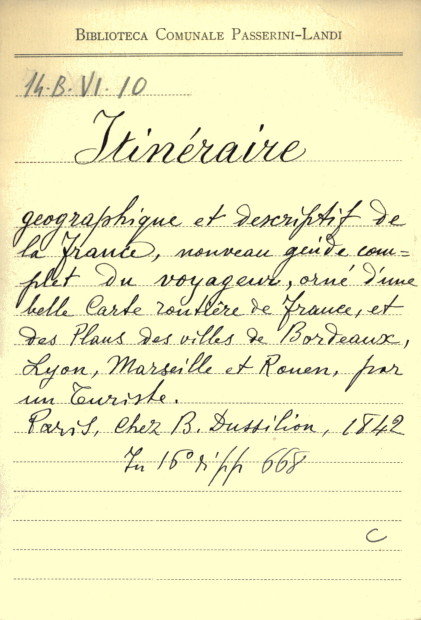 BIBLIOTECA COMUNALE PASSERINI-LANDI
14.B.VI.10
Itinéraire
geographique et descriptif de
la France, nouveau guide com=
plet du voyageur, orné d'une
belle Carte routière de France, et
des Plans des villes de Bordeaux,
Lyon, Marseille et Rouen, par
un Turiste.
Paris, Chez B. Dussilion, 1842
In 16° di pp 668
C